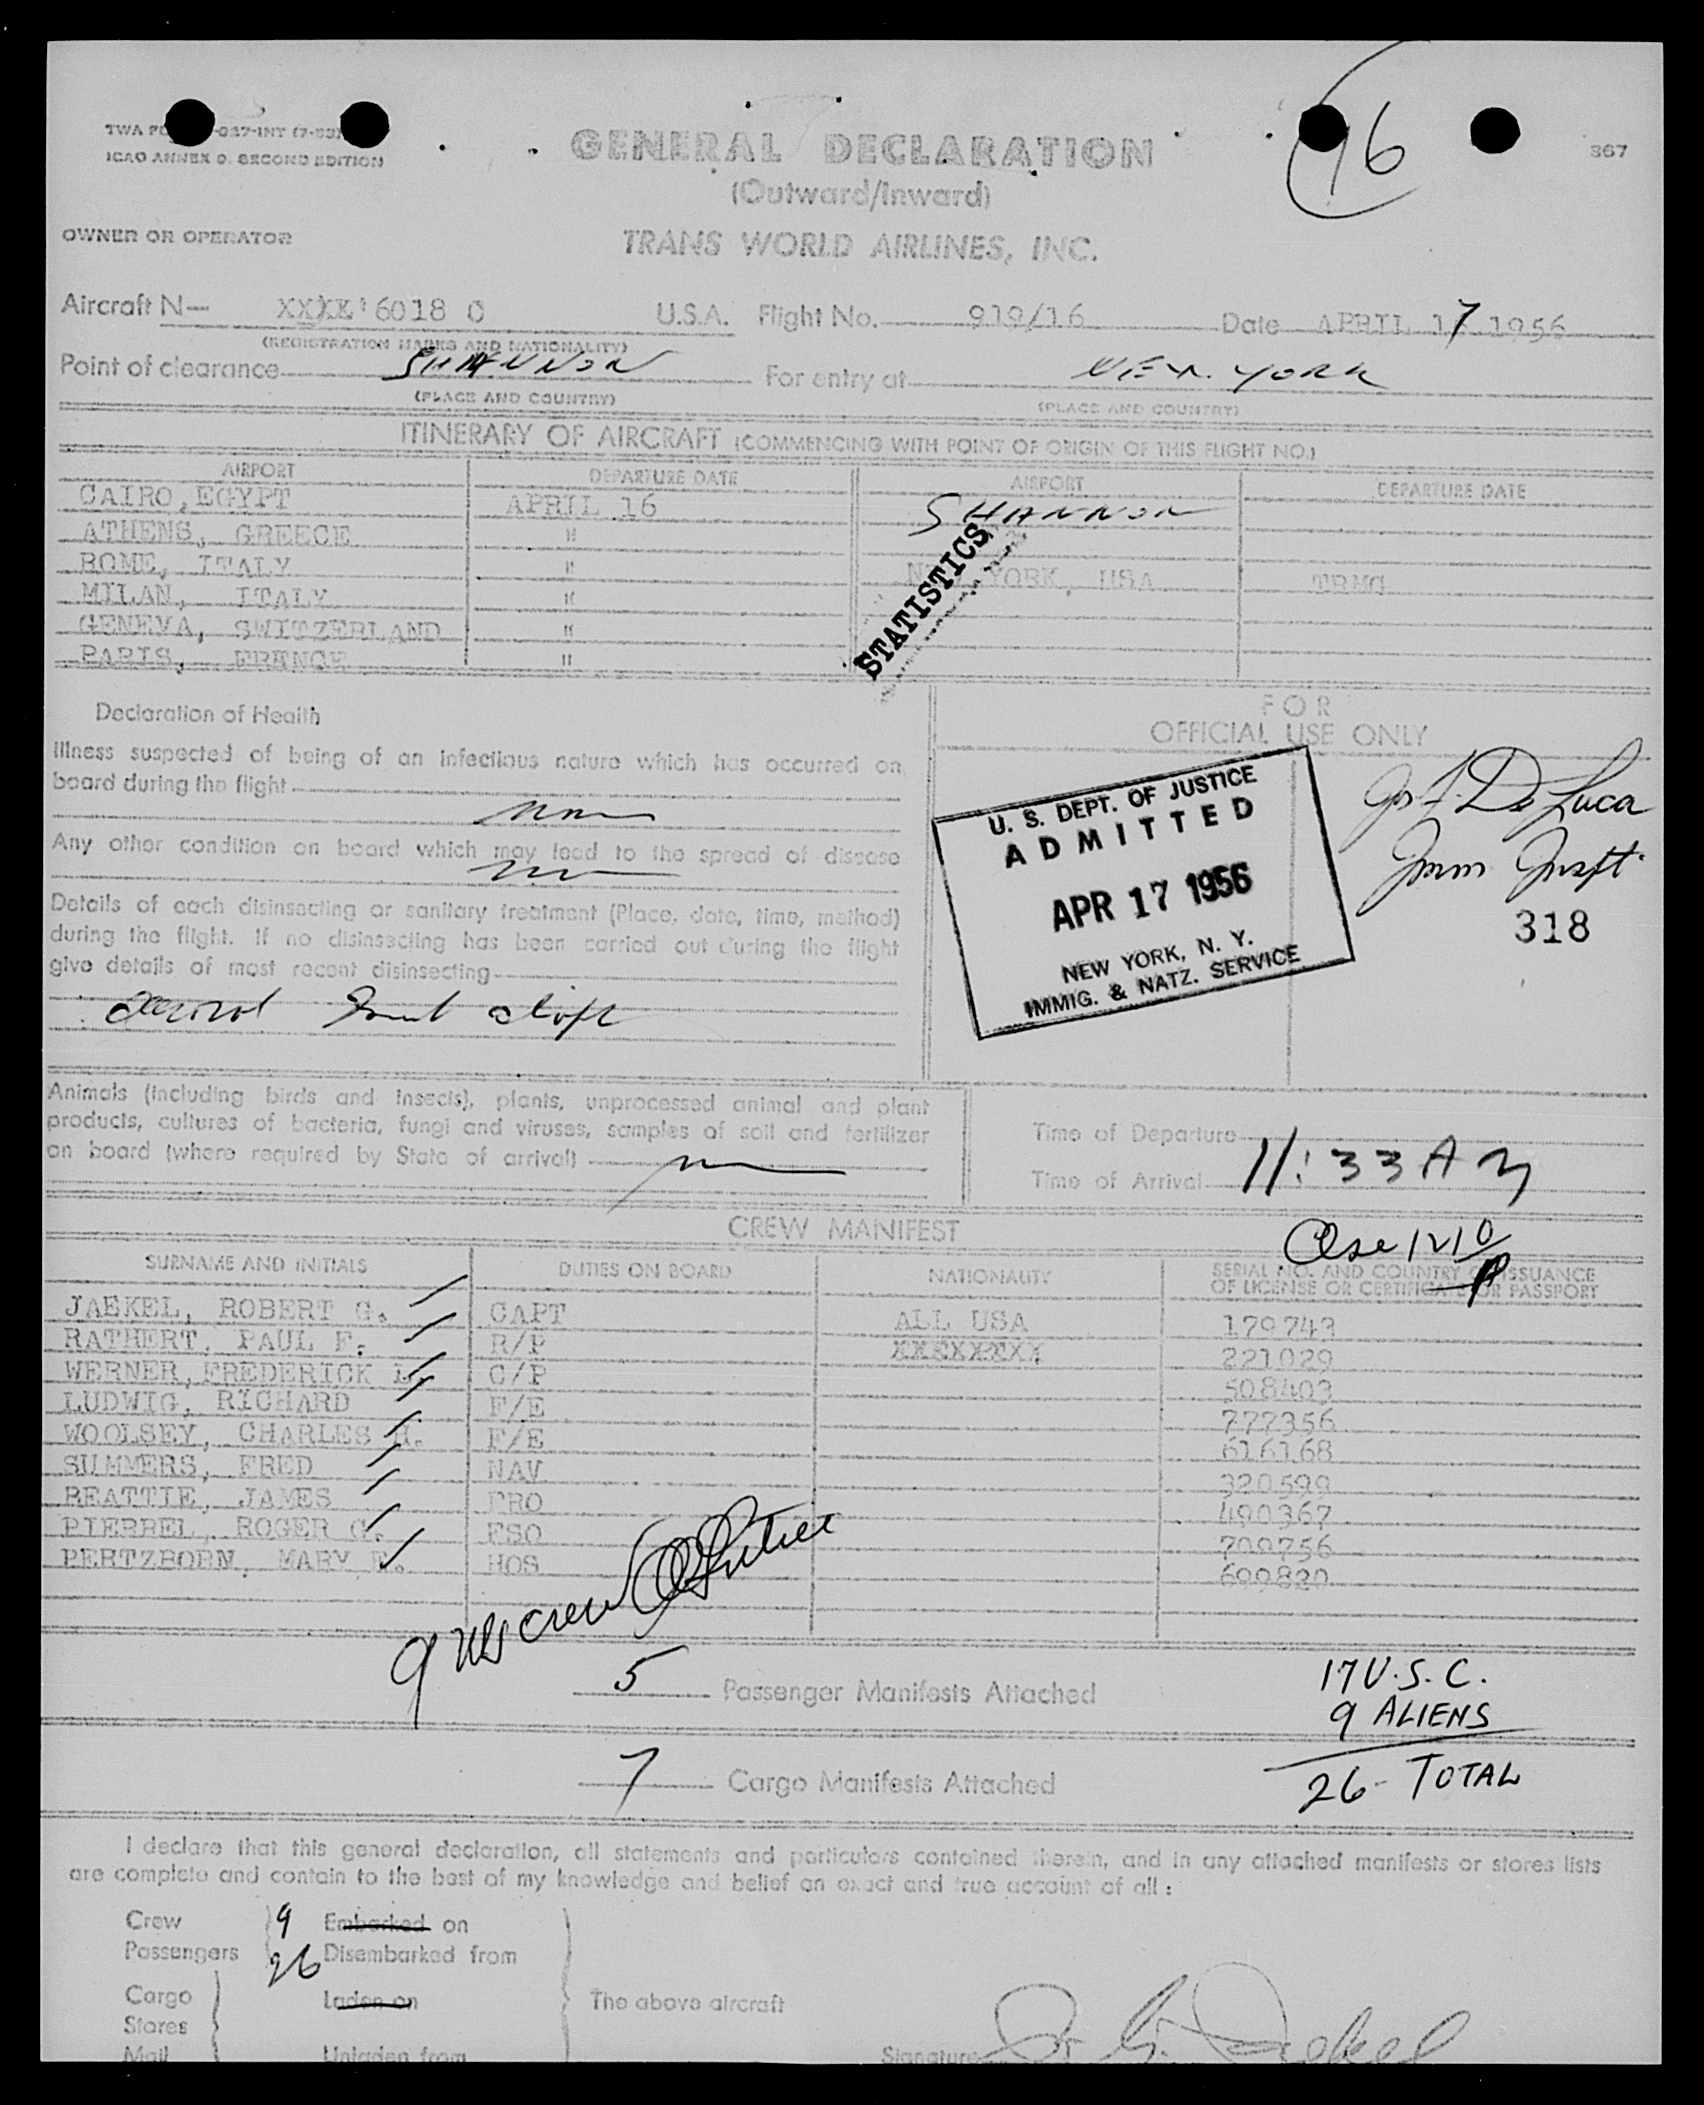 TWA -027-INT (7-53)
ICAO ANNEX 9. SECOND EDITION
GENERAL DECLARATION
(Outward/Inward)
16
367
OWNER OR OPERATOR
TRANS WORLD AIRLINES, INC.
Aircraft N— 6018 C U.S.A. Flight No. 919/16 Date APRIL 17 1956
(REGISTRATION MARKS AND NATIONALITY)
Point of clearance SHANNON For entry at NEW YORK
(PLACE AND COUNTRY) (PLACE AND COUNTRY)
ITINERARY OF AIRCRAFT (COMMENCING WITH POINT OF ORIGIN OF THIS FLIGHT NO.)
AIRPORT DEPARTURE DATE AIRPORT DEPARTURE DATE
CAIRO, EGYPT APRIL 16 SHANNON
ATHENS, GREECE "
ROME, ITALY " NEW YORK, USA TRMG
MILAN, ITALY "
GENEVA, SWITZERLAND "
PARIS, FRANCE "
STATISTICS
Declaration of Health
Illness suspected of being of an infectious nature which has occurred on
board during the flight
None
Any other condition on board which may lead to the spread of disease
Details of each disinsecting or sanitary treatment (Place, date, time, method)
during the flight. If no disinsecting has been carried out during the flight
give details of most recent disinsecting
Aerosol
FOR
OFFICIAL USE ONLY
U. S. DEPT. OF JUSTICE
ADMITTED
APR 17 1956
NEW YORK, N. Y.
IMMIG. & NATZ. SERVICE
Jos F. De Luca
Imm Inspt.
318
Animals (including birds and insects), plants, unprocessed animal and plant
products, cultures of bacteria, fungi and viruses, samples of soil and fertilizer
on board (where required by State of arrival)
Time of Departure
Time of Arrival 11:33 AM
CREW MANIFEST
SURNAME AND INITIALS DUTIES ON BOARD NATIONALITY SERIAL NO. AND COUNTRY OF ISSUANCE
OF LICENSE OR CERTIFICATE OR PASSPORT
JAEKEL, ROBERT G. CAPT ALL USA 179743
RATHERT, PAUL F. R/P 221029
WERNER, FREDERICK L. C/P 508403
LUDWIG, RICHARD F/E 777356
WOOLSEY, CHARLES H. F/E 616168
SUMMERS, FRED NAV 320599
BEATTIE, JAMES FRO 490367
PIERREL, ROGER G. FSO 709756
PERTZBORN, MARY E. HOS 699820
9 US crew
5 Passenger Manifests Attached
17 U.S.C.
9 ALIENS
26- TOTAL
7 Cargo Manifests Attached
I declare that this general declaration, all statements and particulars contained therein, and in any attached manifests or stores lists
are complete and contain to the best of my knowledge and belief an exact and true account of all:
Crew 9 Embarked on
Passengers 26 Disembarked from
Cargo Laden on The above aircraft
Stores
Mail Unladen from
Signature R. G. Jaekel